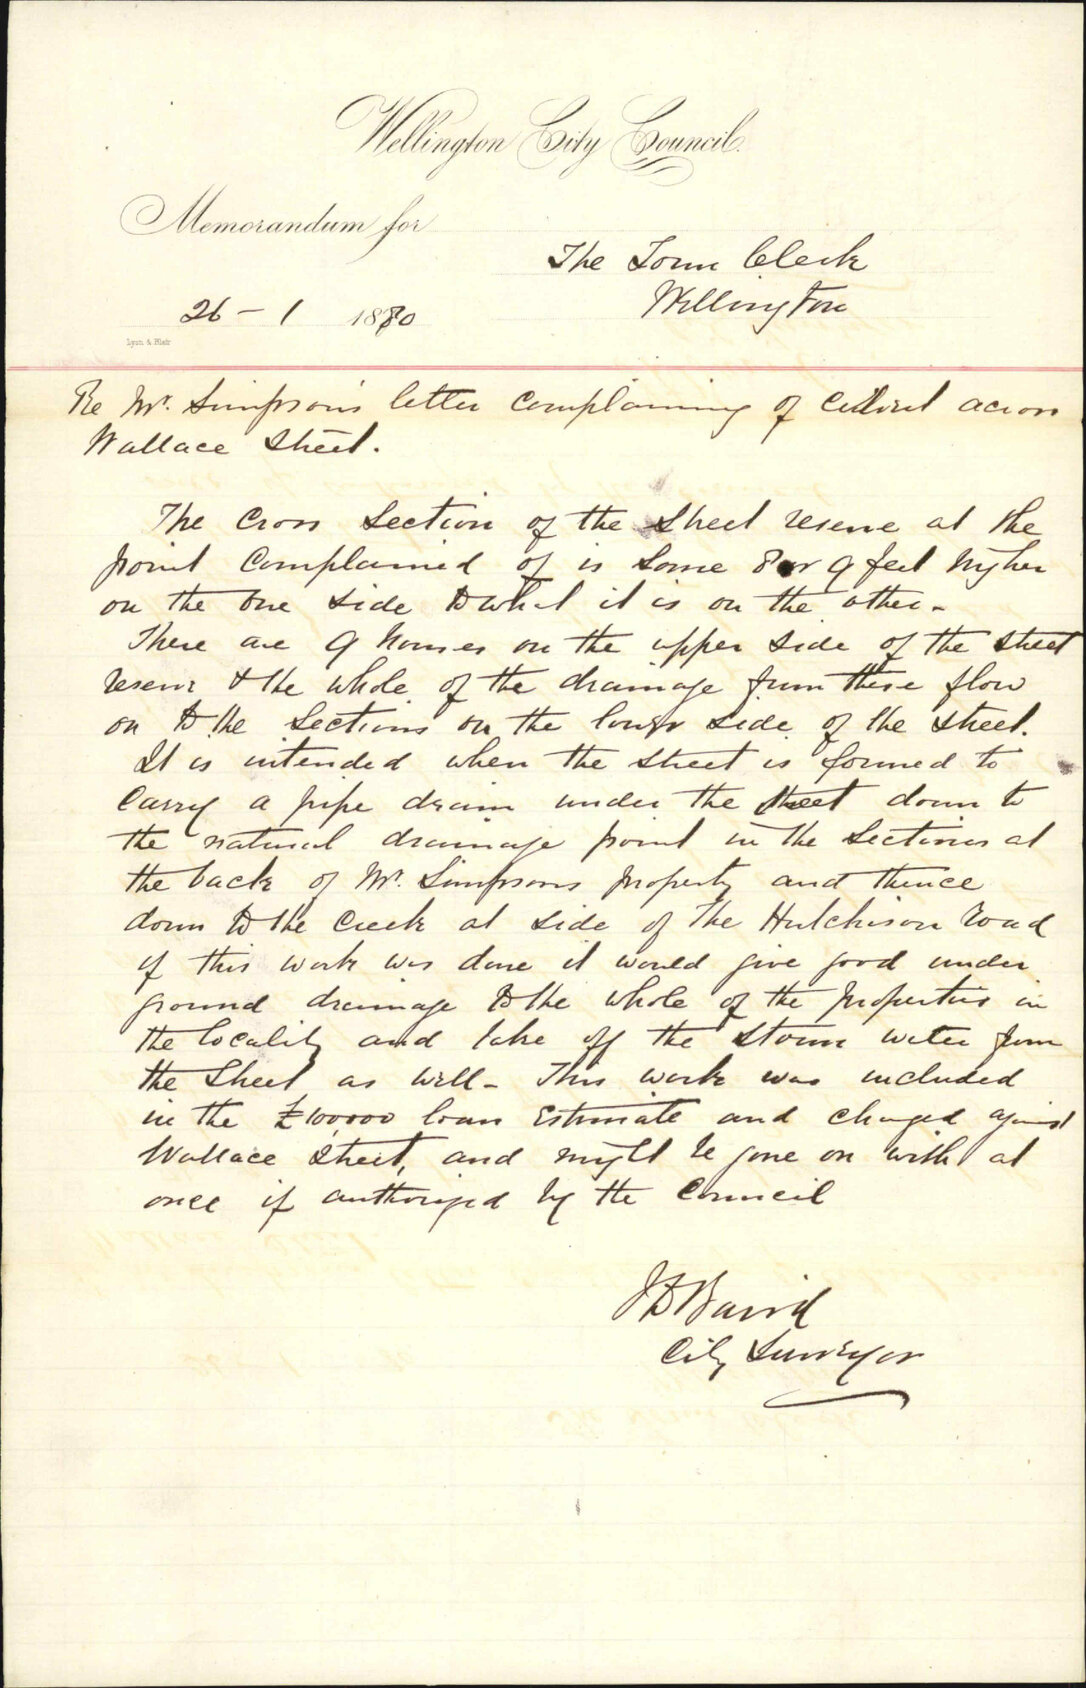 Wellington City Council.
Memorandum for
The Town Clerk
Wellington
26 - 1 1880
Lyon & Blair
Re Mr. Simpson's letter complaining of Culvert across
Wallace Street.
The Cross Section of the Street reserve at the
point Complained of is Some 8 or 9 feet higher
on the one side to what it is on the other -
There are 9 houses on the upper side of the street
reserve & the whole of the drainage from these flow
on to the Sections on the lower side of the street.
It is intended when the street is formed to
Carry a pipe drain under the street down to
the natural drainage point in the Sections at
the back of Mr. Simpsons property and thence
down to the Creek at side of the Hutchison road
if this work was done it would give good under
ground drainage to the whole of the properties in
the locality and take off the Storm water from
the Street as well - This work was included
in the £100,000 loan Estimate and charged against
Wallace Street, and might be gone on with at
once if authorized by the Council
JD Baird
City Surveyor